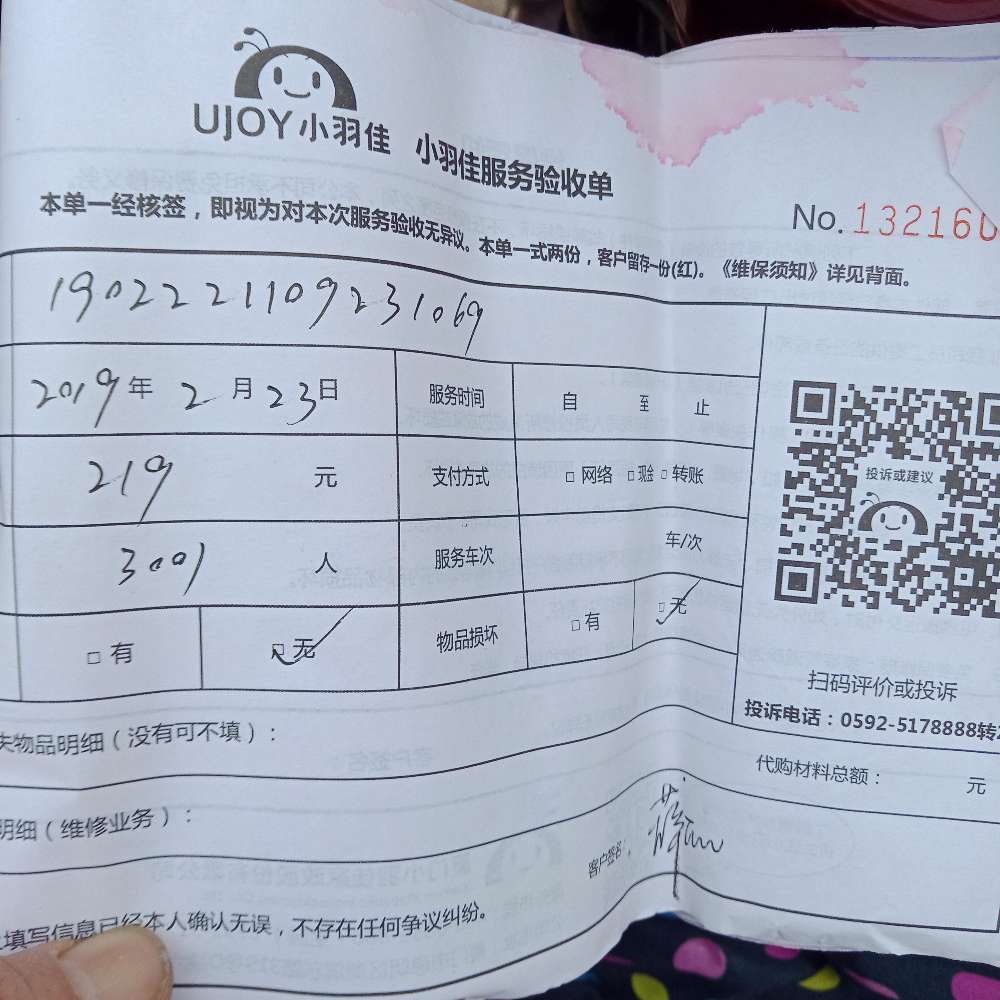 UJOY小羽佳 小羽佳服务验收单
No. 132160
本单一经核签，即视为对本次服务验收无异议。本单一式两份，客户留存一份(红)。《维保须知》详见背面。
1902221109231069
2019年 2月 23日 服务时间 自 至 止
219 元 支付方式 □ 网络 □ 现金 □ 转账
3001 人 服务车次 年/次
□ 有 □ 无 物品损坏 □ 有 □ 无
投诉或建议
扫码评价或投诉
投诉电话：0592-5178888转2
失物品明细（没有可不填）：
代购材料总额： 元
明细（维修业务）：
客户签名：
填写信息已经本人确认无误，不存在任何争议纠纷。